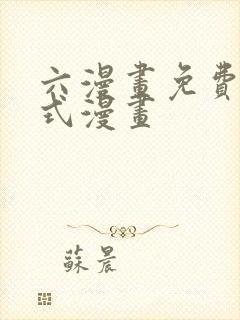 六漫畫免費
式漫畫
蘇晨